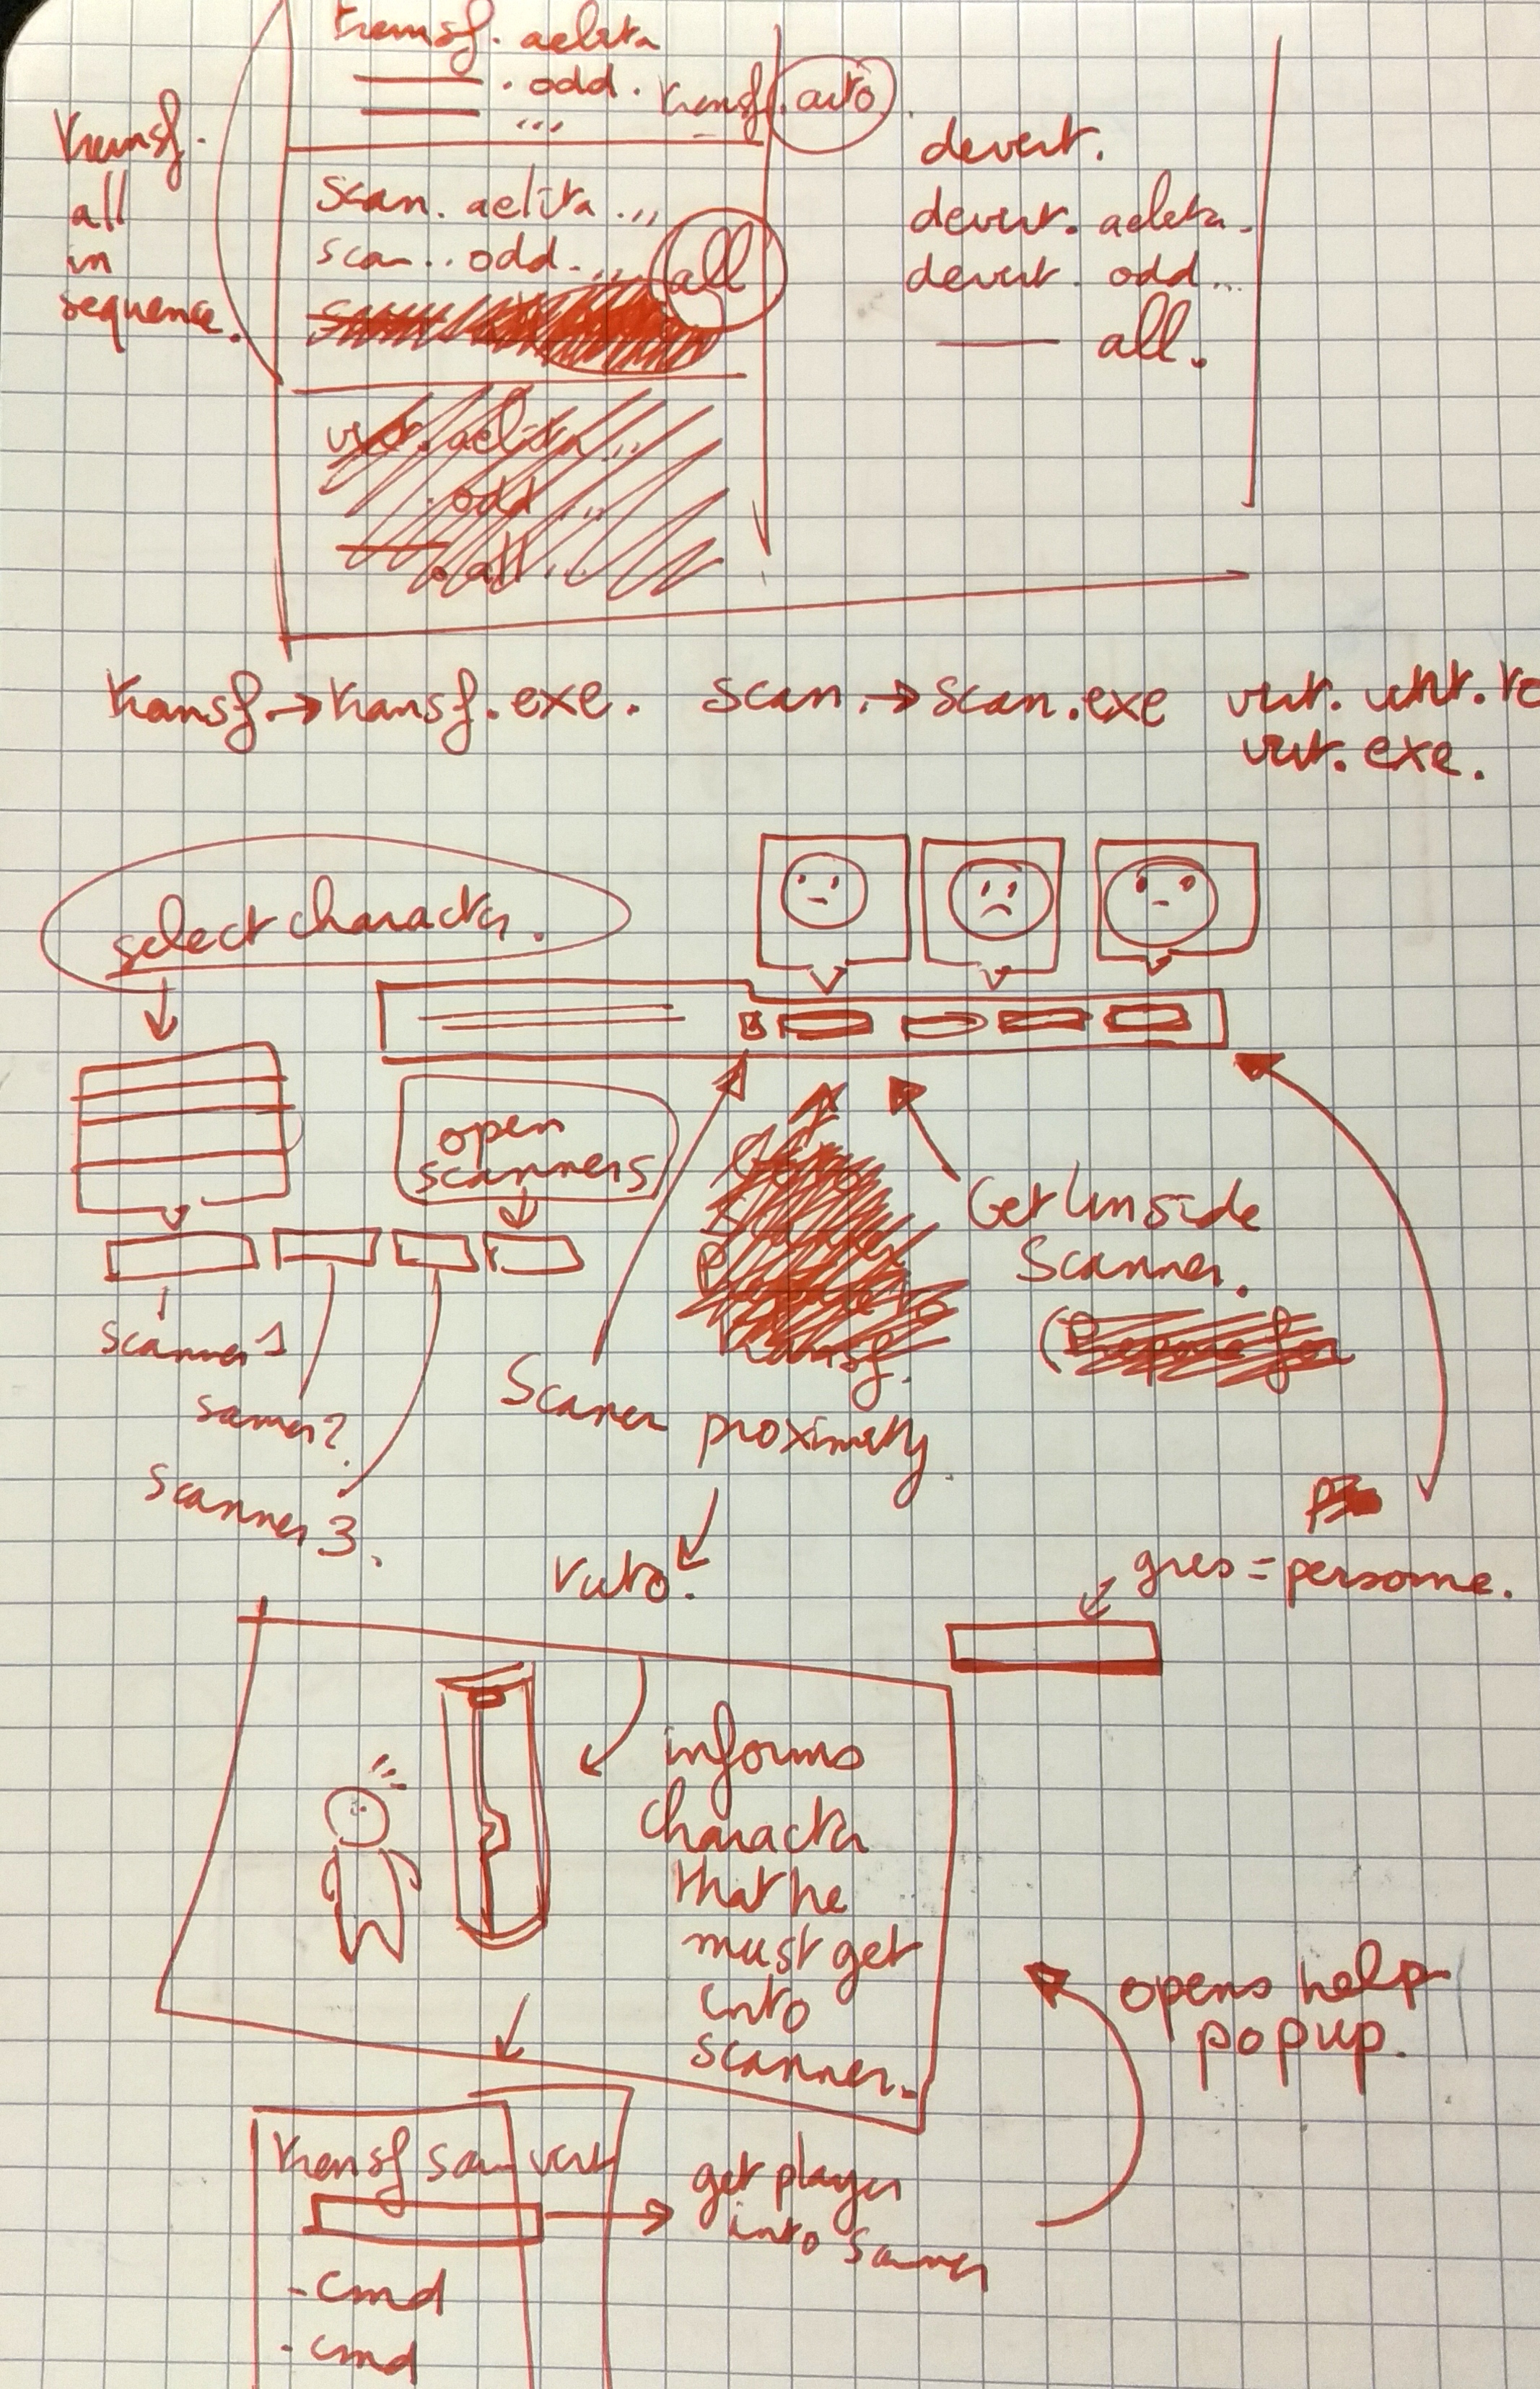 transf. aelita
. odd.
...
transf. auto
transf.
all
in
sequence.
scan. aelita...
scan.. odd....
all
devert.
devert. aelita.
devert. odd...
all.
virt. aelita...
. odd ...
. all ...
transf. → transf. exe.
scan. → scan. exe
virt.
virt. exe.
select character.
open
scanners
Get inside
Scanner.
(Prepare for
transf.
scanner 1
scanner 2
scanner 3.
Scaner proximity
tuto.
gres = personne.
informs
character
that he
must get
into
scanner.
opens help
popup.
transf scan virt
get player
into scanner
- cmd
- cmd